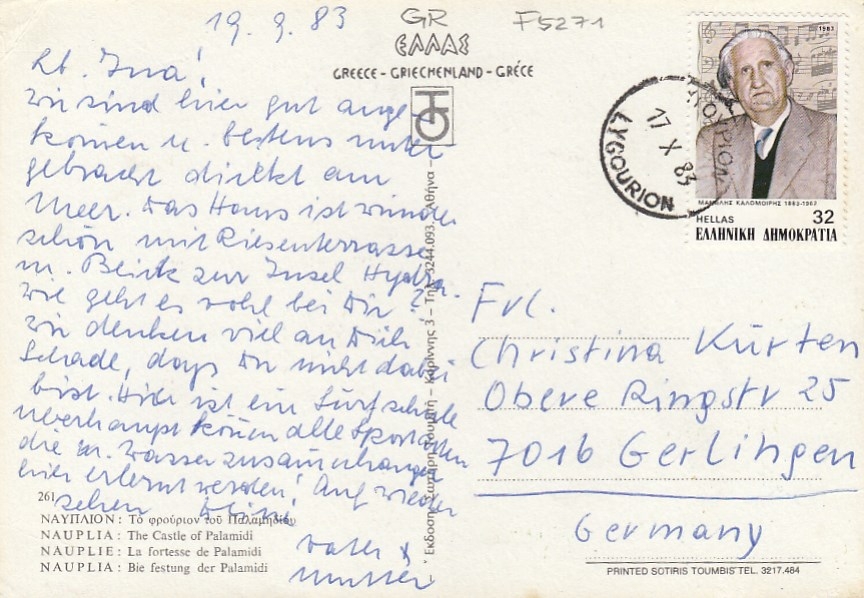 19. 9. 83
GR
F5271
ΕΛΛΑΣ
GREECE - GRIECHENLAND - GRÉCE
Lb. Ina!
Wir sind hier gut ange-
kommen u. bestens unter
gebracht direkt am
Meer. Das Haus ist wunder
schön mit Riesenterrasse
m. Blick zur Insel Hydra.
Wie geht es wohl bei Dir?
Wir denken viel an Dich
Schade, dass Du nicht dabei
bist. Hier ist ein Surfschule
überhaupt können alle Sportarten
die m. Wasser zusammenhängen
hier erlernt werden! Auf wieder
sehen Deine
Vater &
Mutter
261
ΝΑΥΠΛΙΟΝ : Τό φρούριον τοῦ Παλαμηδίου
NAUPLIA : The Castle of Palamidi
NAUPLIE : La fortesse de Palamidi
NAUPLIA : Bie festung der Palamidi
Εκδοση Σωτήρη Τουμπή - Κορίννης 3 - Τηλ. 3244.093. Αθήνα -
1983
ΜΑΝΩΛΗΣ ΚΑΛΟΜΟΙΡΗΣ 1883-1962
HELLAS 32
ΕΛΛΗΝΙΚΗ ΔΗΜΟΚΡΑΤΙΑ
17 X 83
LYGOURION
Frl.
Christina Kürten
Obere Ringstr 25
7016 Gerlingen
Germany
PRINTED SOTIRIS TOUMBIS TEL. 3217.484